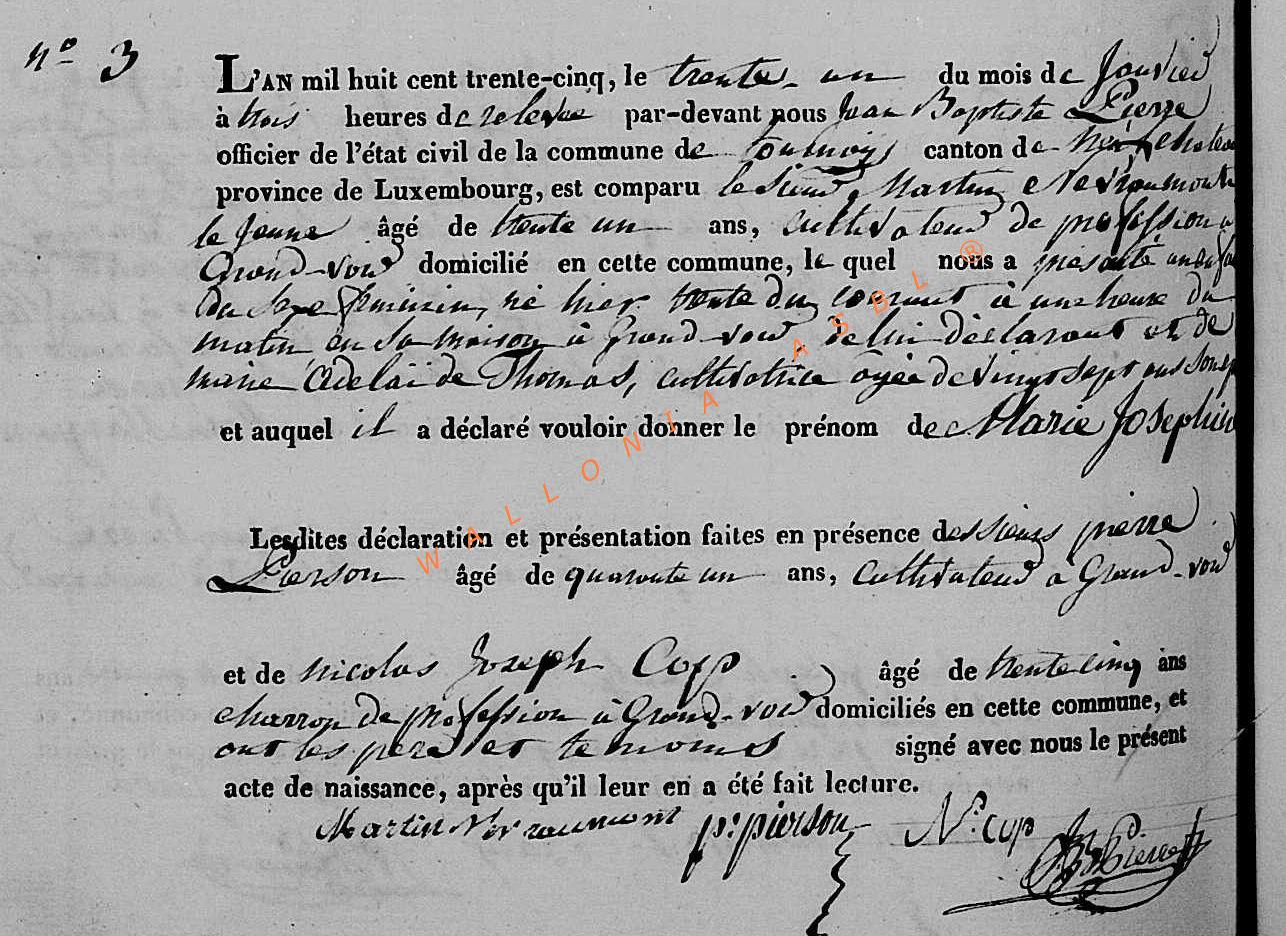 n.º 3
L'AN mil huit cent trente-cinq, le trente-un du mois de Janvier
à trois heures de relevée par-devant nous Jean Baptiste Pierre
officier de l'état civil de la commune de tournay canton de Neufchateau
province de Luxembourg, est comparu le Sieur Martin
le jeune âgé de trente un ans, cultivateur de profession à
Grand-voir domicilié en cette commune, le quel nous a présenté un enfant
du Sexe feminin, né hier trente du courant à une heure du
matin en sa maison à Grand-voir, de lui déclarant et de
marie Adelaide Thomas, cultivatrice agée de vingt sept ans
et auquel il a déclaré vouloir donner le prénom de Marie Josephine
Lesdites déclaration et présentation faites en présence des sieurs pierre
Pierson âgé de quarante un ans, cultivateur à Grand-voir
et de nicolas Joseph Cop âgé de trente cinq ans
charron de profession à Grand-voir domiciliés en cette commune, et
ont les pere et temoins signé avec nous le présent
acte de naissance, après qu'il leur en a été fait lecture.
Martin p: pierson N: cop Pierre
WALLONIA ASBL ®